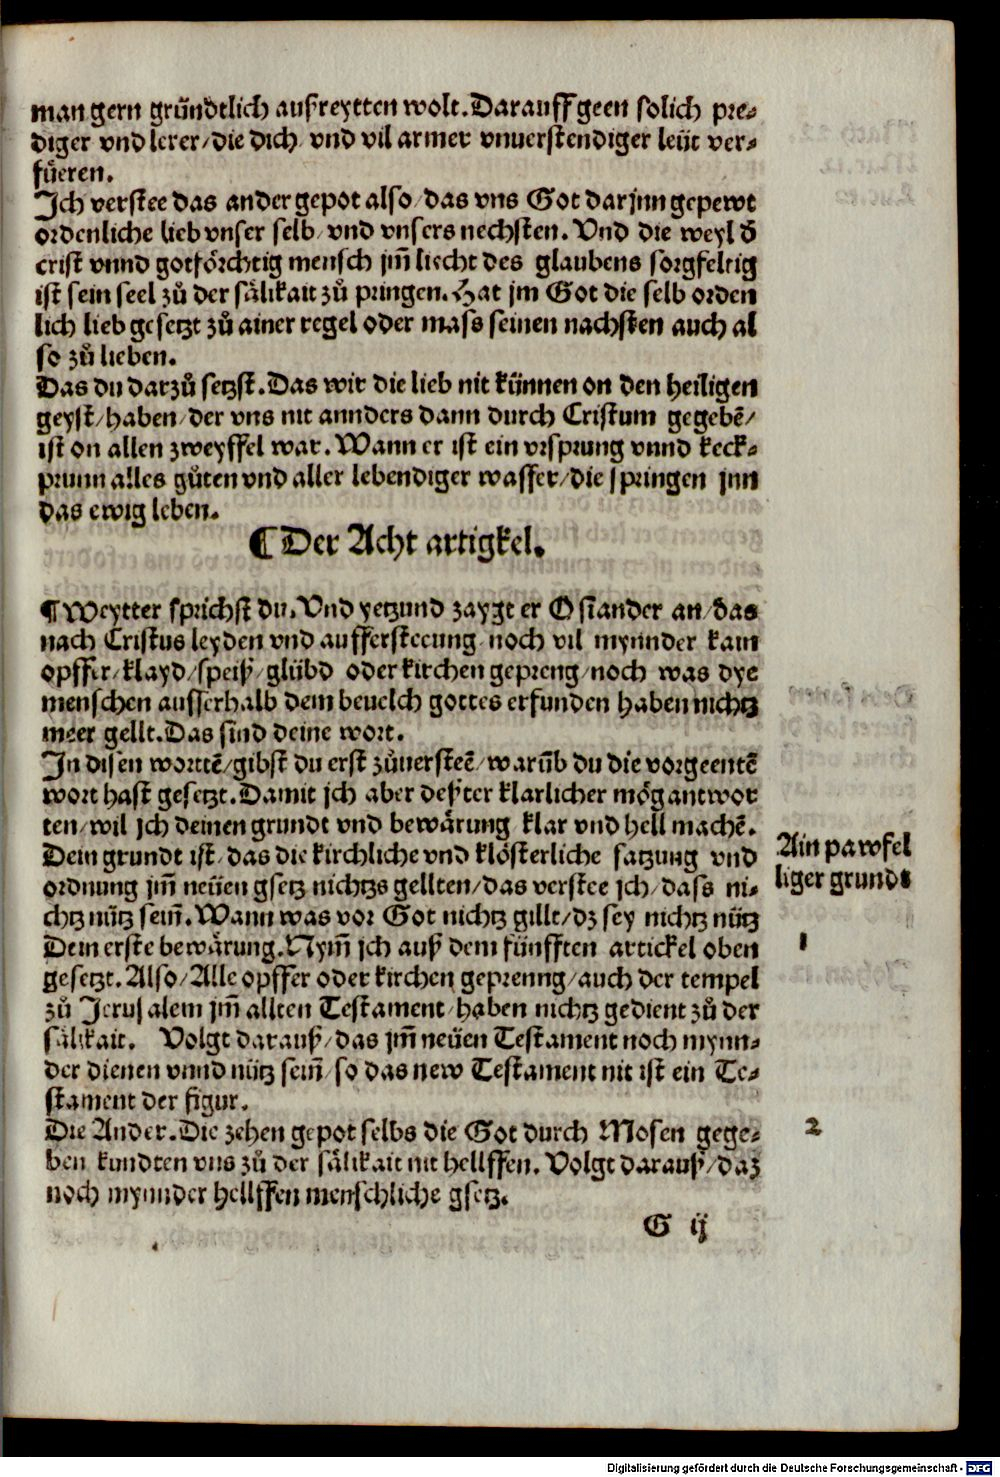 man gern gründtlich außreytten wolt. Darauff geen solich pre-
diger vnd lerer/die dich vnd vil armer vnuerstendiger leüt ver-
füeren.
Ich verstee das ander gepot also/das vns Got darjnn gepewt
ordenliche lieb vnser selb/vnd vnsers nechsten. Vnd die weyl d̄
crist vnnd gotförchtig mensch jm̄ liecht des glaubens sorgfeltig
ist sein seel zů der sålikait zů pringen. Hat jm Got die selb orden
lich lieb gesetzt zů ainer regel oder mass seinen nachsten auch al
so zů lieben.
Das du darzů setzst. Das wir die lieb nit künnen on den heiligen
geyst/haben/der vns nit annders dann durch Cristum gegebē/
ist on allen zweyffel war. Wann er ist ein vrsprung vnnd keck-
prunn alles gůten vnd aller lebendiger wasser/die springen jnn
das ewig leben.
¶ Der Acht artigkel.
¶ Weytter sprichst du. Vnd yetzund zaygt er Osiander an/das
nach Cristus leyden vnd auffersteeung noch vil mynnder kain
opffer/klayd/speiß/glübd oder kirchen gepreng/noch was dye
menschen ausserhalb dem beuelch gottes erfunden haben nichtz
meer gellt. Das sind deine wort.
In disen worttē/gibst du erst zůuersteē/warūb du die vorgeentē
wort hast gesetzt. Damit jch aber deßter klarlicher mög antwor
ten/wil jch deinen grundt vnd bewårung klar vnd hell machē.
Dein grundt ist/das die kirchliche vnd klösterliche satzung vnd
ordnung jm̄ neüen gsetz nichtzs gellten/das verstee jch/dass ni-
chtz nütz sein̄. Wann was vor Got nichtz gillt/dz sey nichtz nütz
Dein erste bewårung. Nym̄ jch auß dem fünfften artickel oben
gesetzt. Also/Alle opffer oder kirchen geprenng/auch der tempel
zů Jerusalem jm̄ allten Testament/haben nichtz gedient zů der
sålikait. Volgt darauß/das jm̄ neüen Testament noch mynn-
der dienen vnnd nütz sein̄/so das new Testament nit ist ein Te-
stament der figur.
Die Ander. Die zehen gepot selbs die Got durch Mosen gege-
ben kundten vns zů der sålikait nit hellffen. Volgt darauß/daz
noch mynnder hellffen menschliche gsetz.
G ij
Ain pawfel
liger grundt
1
2
Digitalisierung gefördert durch die Deutsche Forschungsgemeinschaft - DFG